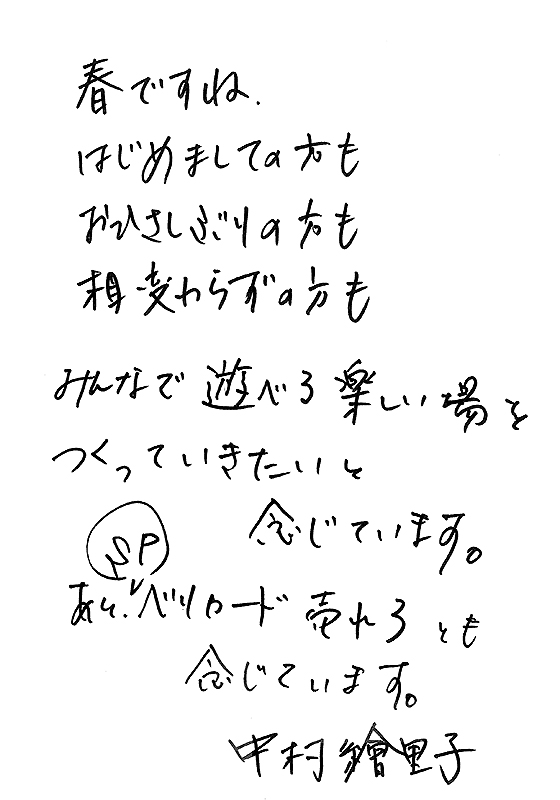 春ですね.
はじめましての方も
おひさしぶりの方も
相変わらずの方も
みんなで遊べる楽しい場を
つくっていきたいと
念じています。
SP
あと、ベリロード売れろとも
念じています。
中村繪里子